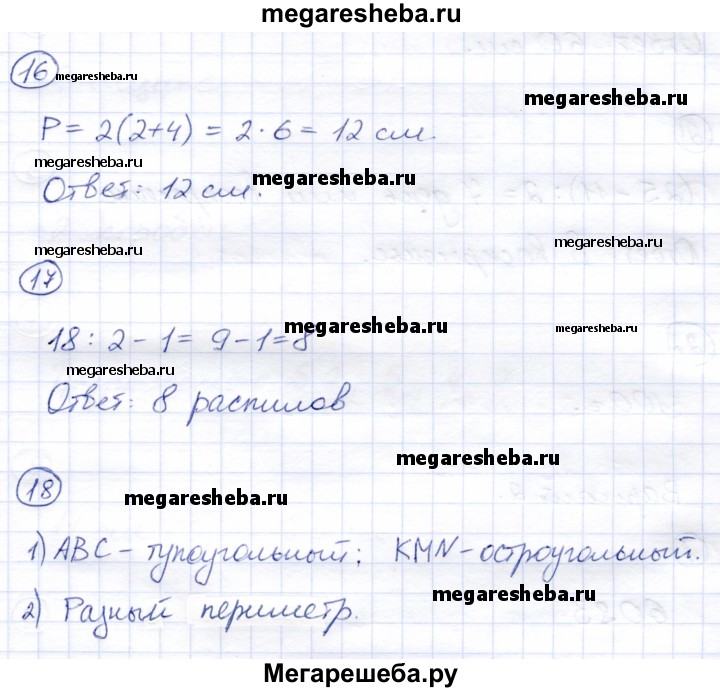 megaresheba.ru
16 megaresheba.ru
megaresheba.ru
P = 2(2+4) = 2·6 = 12 см.
megaresheba.ru
Ответ: 12 см.
megaresheba.ru
megaresheba.ru
megaresheba.ru
17
18 : 2 - 1 = 9 - 1 = 8
megaresheba.ru
megaresheba.ru
megaresheba.ru
Ответ: 8 распилов
megaresheba.ru
18
megaresheba.ru
1) ABC - тупоугольный; KMN - остроугольный.
megaresheba.ru
2) Разный периметр.
Мегарешеба.ру